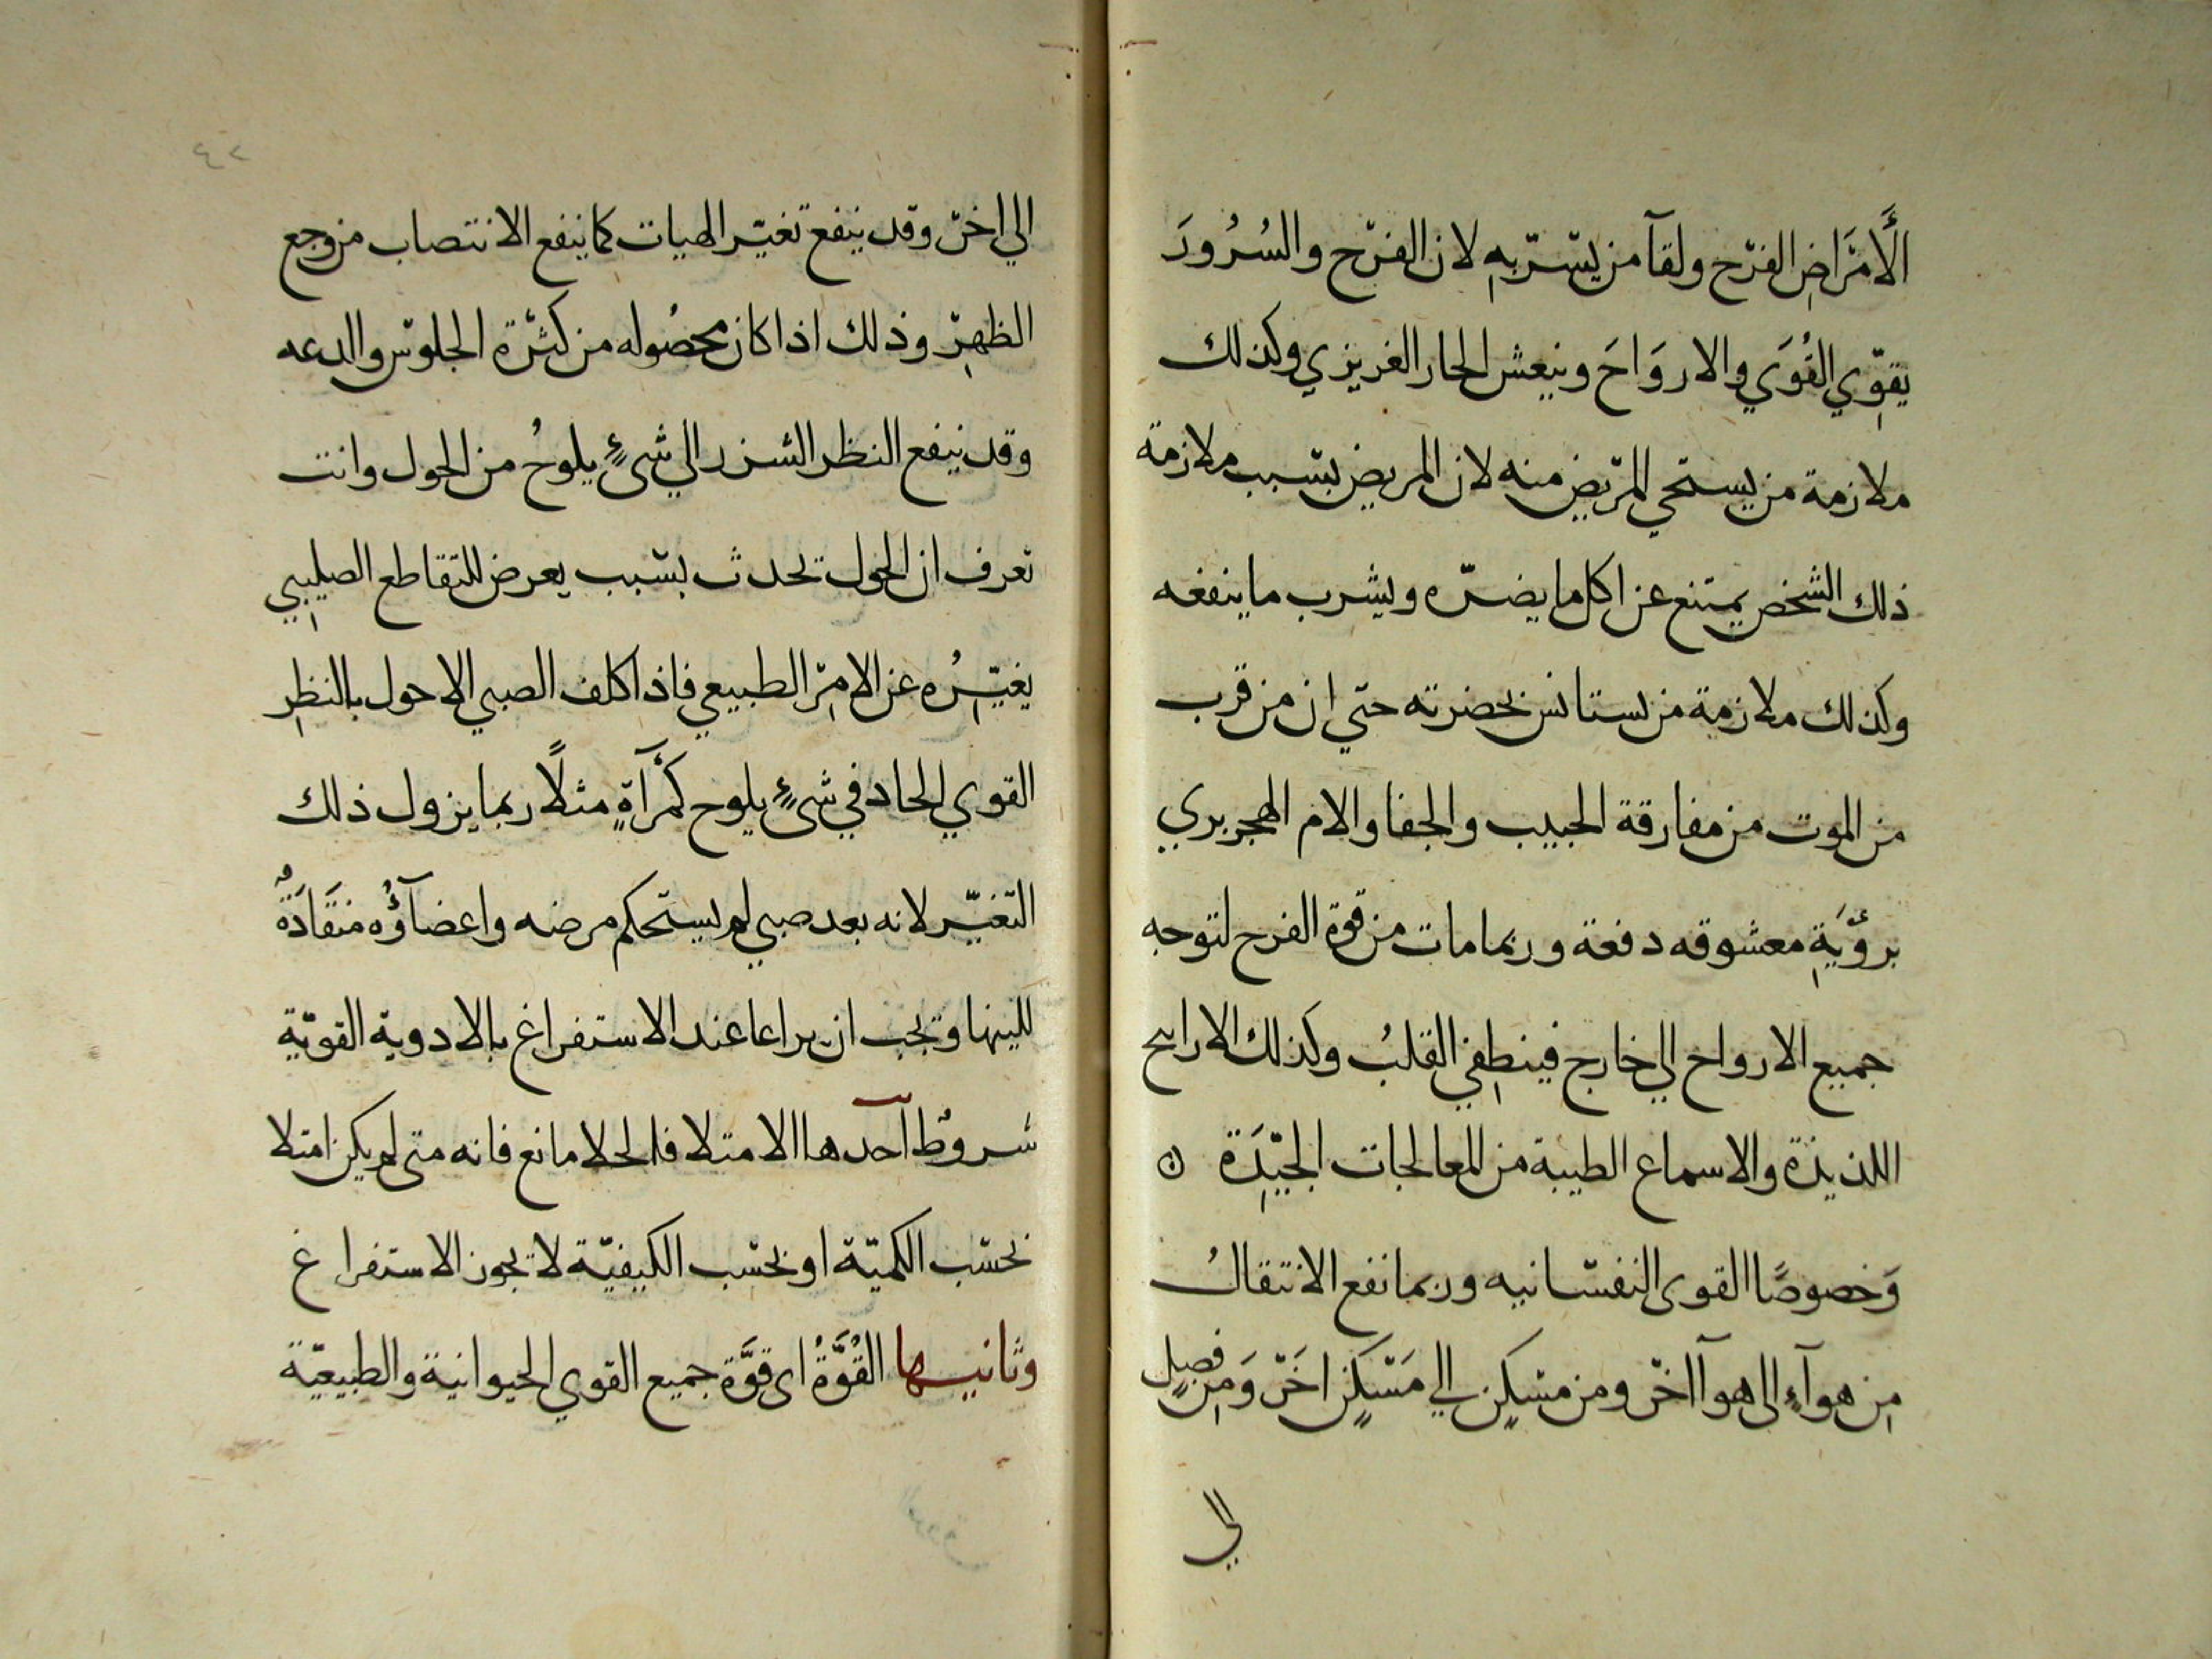 الأَمرَاضِ الفرح ولقآ من يسرّ بهِ لان الفرح والسُرُورَ
يقوِّي القُوَي والاروَاحَ وينعش الحار الغريزي وكذلك
ملازمة من يستحي المريض منه لان المريض بسبب ملازمة
ذلك الشخص يمتنع عن اكل ما يضرّه ويشرب ما ينفعه
وكذلك ملازمة من يستانس بحضرته حتي ان من قرب
من الموت من مفارقة الحبيب والجفا والام الهجر بري
برؤيَةِ معشوقه دفعة وربما مات من قوة الفرح لتوجه
جميع الارواح الي خارج فينطِفي القلبُ وكذلك الارايح
اللذيذة والاسماع الطيبة من المعالجات الجيّدَة ن
وَخصوصًا القوى النفسانيه وربما نفع الانتقالُ
مِن هوآءٍ الى هوآ اخر ومن مسكِن الي مَسْكَنٍ اخَر وَمِن فصلٍ
الي
٤٢
الي اخر وقد ينفع تغيّر الهيات كما ينفع الانتصاب من وجع
الظهرِ وذلك اذا كان محصُوله من كثرة الجلوس والدعه
وقد ينفع النظر الشزر الي شىءٍ يلوحُ من الحول وانت
تعرف ان الحول يحدث بسبب يعرض للتقاطع الصليبِي
يغيّرُه عن الامرِ الطبيعي فاذا كلف الصبي الاحول بالنظرِ
القوي الحاد في شىءٍ يلوح كمرآةٍ مثلاً ربما يزول ذلك
التغيّر لانه بعد صبي لم يستحكم مرضه واعضآؤُه منقَادَةٌ
للينها ويجب ان يراعا عند الاستفراغ بالادوية القويّة
شروط آحدها الامتلا فالخلا مانع فانه متى لم يكن امتلا
بحسب الكميّة او بحسب الكيفيّة لا يجوز الاستفراغ
وثانيها القُوَّةُ اى قوَّة جميع القوي الحيوانية والطبيعيّة